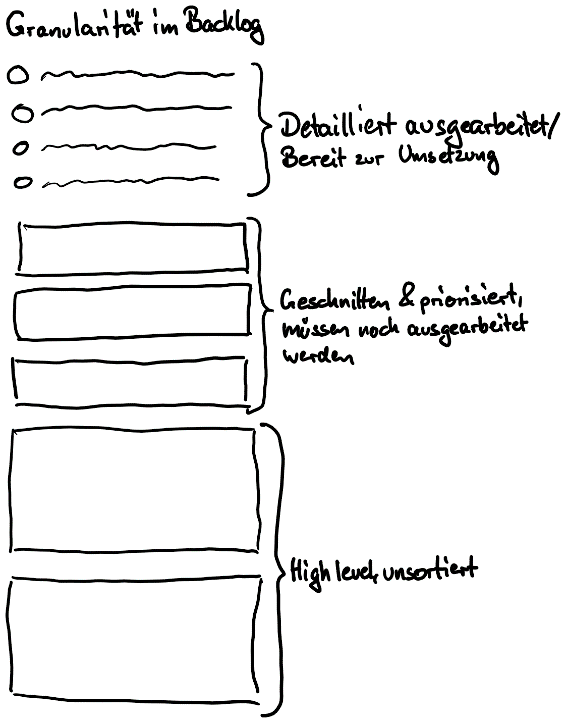 Granularität im Backlog
Detailliert ausgearbeitet/
Bereit zur Umsetzung
Geschnitten & priorisiert,
müssen noch ausgearbeitet
werden
High level, unsortiert